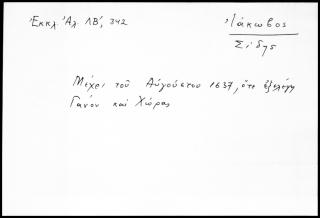 Ἐκκλ. Ἀλ. ΛΒ', 342
Ἰάκωβος
Σίδης
Μέχρι τοῦ Αὐγούστου 1637, ὅτε ἐξελέγη
Γάνου καὶ Χώρας